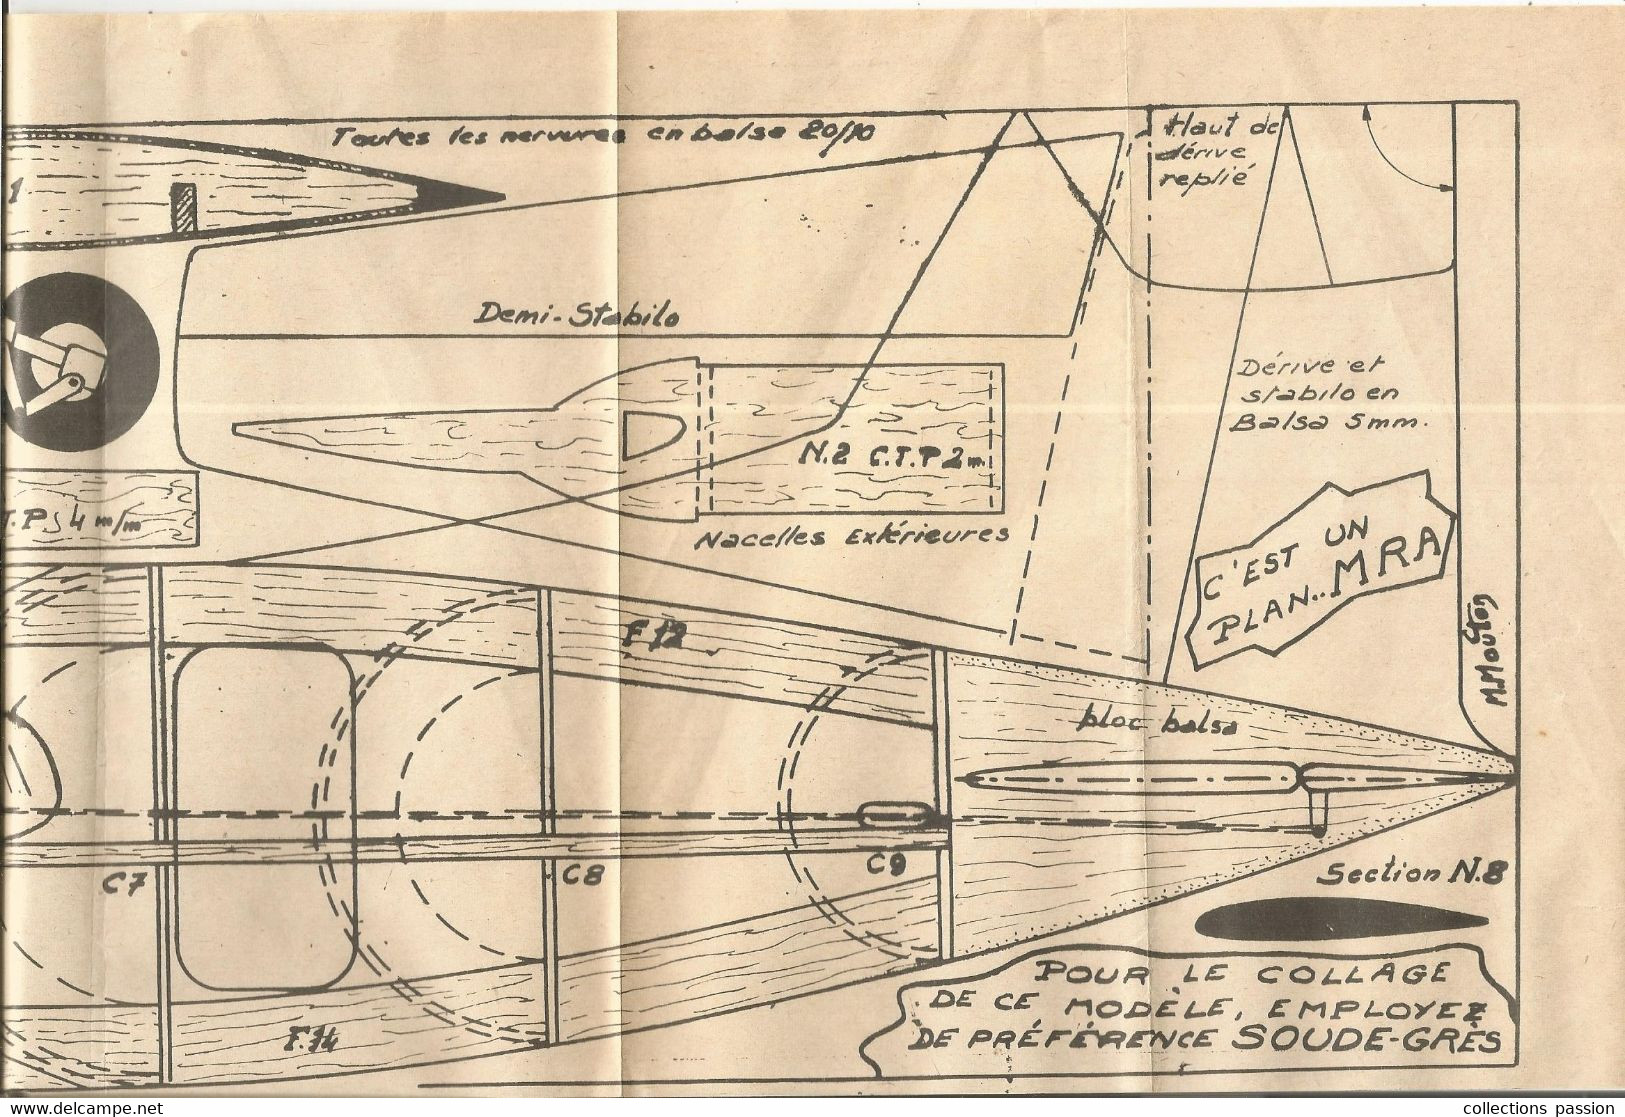 Toutes les nervures en balsa 20/10
Haut de
dérive
replié
1
Demi-Stabilo
Dérive et
stabilo en
Balsa 5mm.
N.2 C.T.P 2 m.
T.P. 4 m/m
Nacelles Extérieures
C'EST UN
PLAN.. MRA
M.Mouton
F 12
bloc balsa
C7
C8
C9
Section N.8
F.14
POUR LE COLLAGE
DE CE MODÈLE, EMPLOYEZ
DE PRÉFÉRENCE SOUDE-GRÈS
www.delcampe.net
collections passion